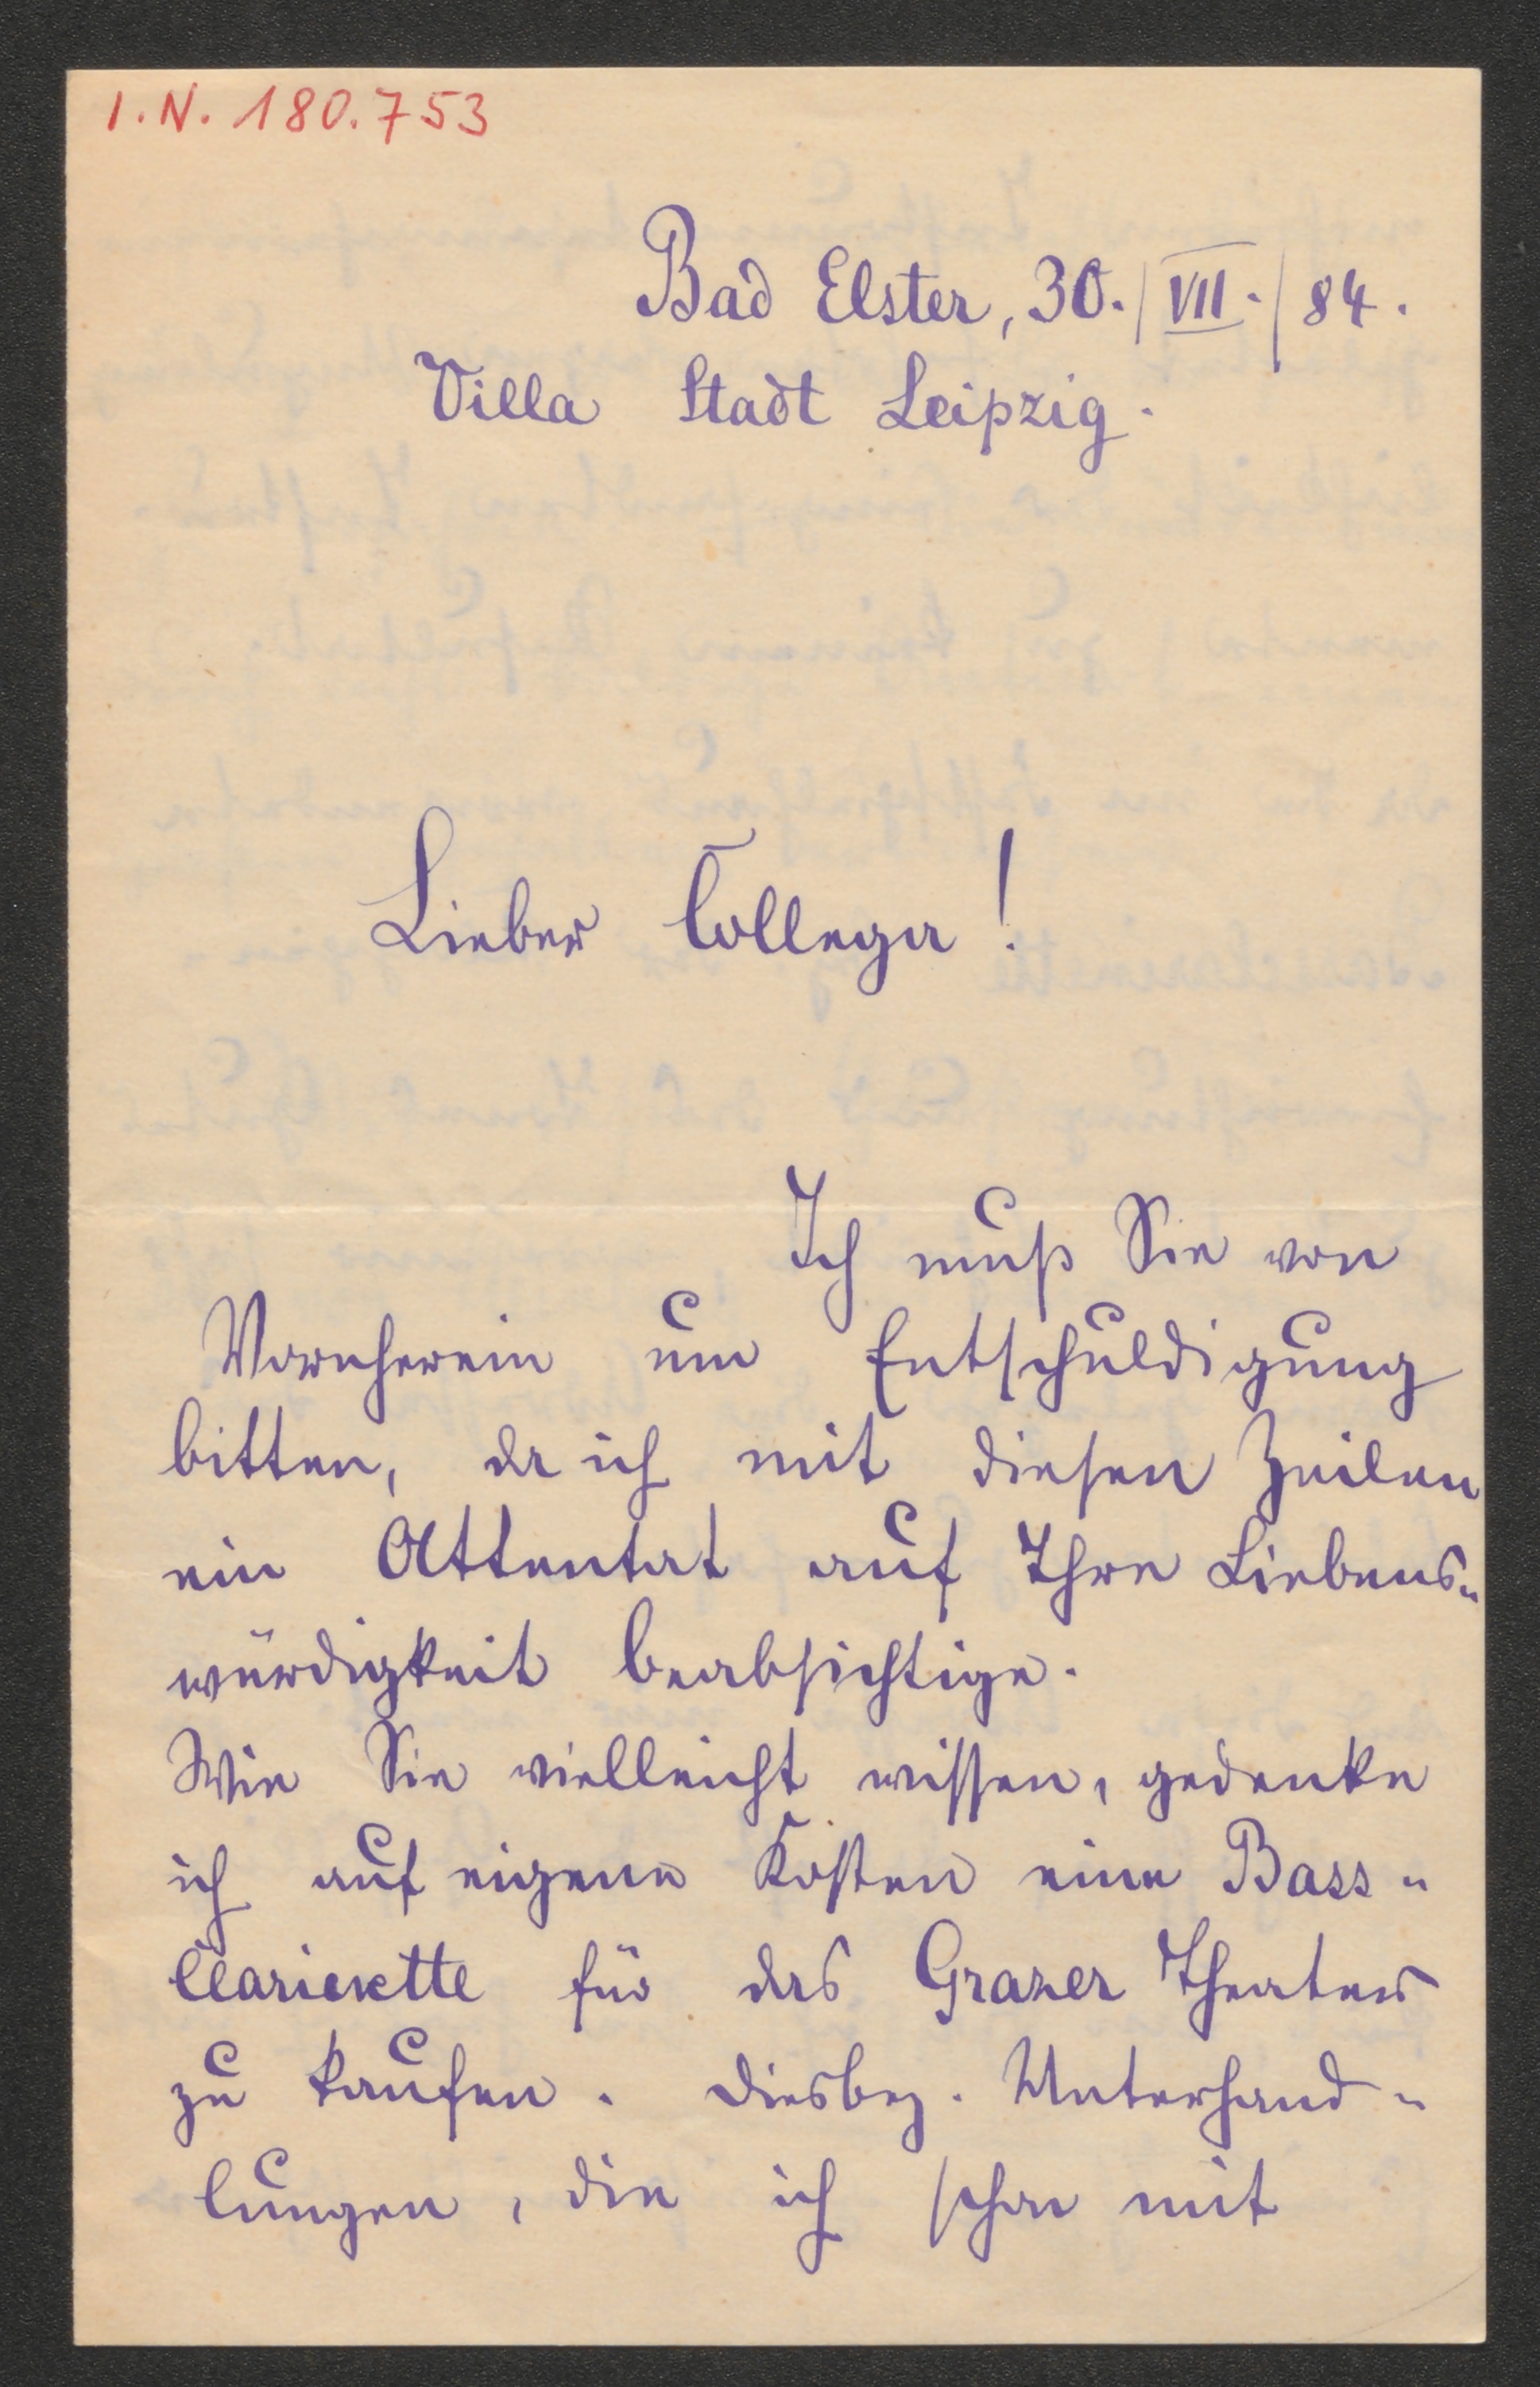 I.N. 180.753
Bad Elster, 30./VII./84.
Villa Stadt Leipzig.
Lieber Collega!
Ich muß Sie von
Vornherein um Entschuldigung
bitten, da ich mit diesen Zeilen
ein Attentat auf Ihre Liebens-
würdigkeit beabsichtige.
Wie Sie vielleicht wissen, gedenke
ich auf eigene Kosten eine Bass-
Clarinette für das Grazer Theater
zu kaufen. Diesbez. Unterhand-
lungen, die ich schon mit